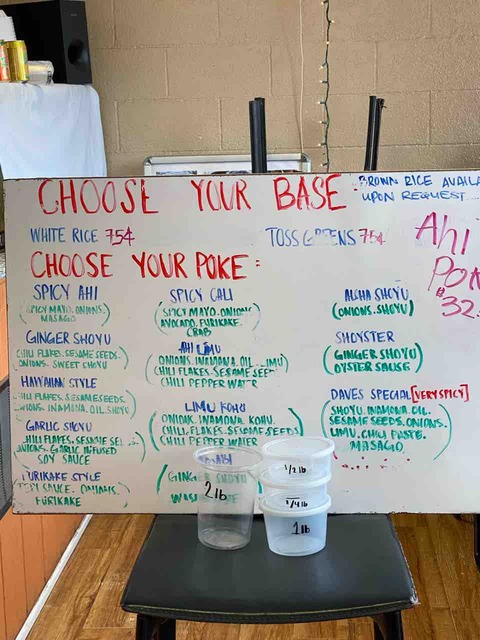 CHOOSE YOUR BASE:
BROWN RICE AVAILA
UPON REQUEST...
WHITE RICE 754
TOSS GREENS 754
CHOOSE YOUR POKE:
Ahi
$32.
SPICY AHI
(SPICY MAYO. ONIONS.
MASAGO)
GINGER SHOYU
CHILI FLAKES. SESAME SEEDS.
ONIONS. SWEET SHOYU
HAWAIIAN STYLE
CHILI FLAKES. SESAME SEEDS.
INAMONA. OIL. SHOYU)
GARLIC SHOYU
CHILI FLAKES. SESAME
ONIONS. GARLIC INFUSED
SOY SAUCE
FURIKAKE STYLE
SAUCE. ONIONS.
FURIKAKE
SPICY CALI
(SPICY MAYO. ONIONS
AVOCADO. FURIKAKE.
CRAB)
AHI LIMU
ONIONS. INAMONA. OIL. LIMU
CHILI FLAKES. SESAME
CHILI PEPPER
LIMU KOHU
INAMONA. KOHU.
CHILI FLAKES. SESAME SEEDS
CHILI PEPPER WATER
SHOYU
ALOHA SHOYU
(ONIONS. SHOYU)
SHOYSTER
(GINGER SHOYU
OYSTER SAUSE)
DAVES SPECIAL [VERY SPICY]
(SHOYU. INAMONA. OIL.
SESAME SEEDS. ONIONS.
LIMU. CHILI PASTE.
MASAGO)
2 lb
1/2 lb
1/4 lb
1 lb